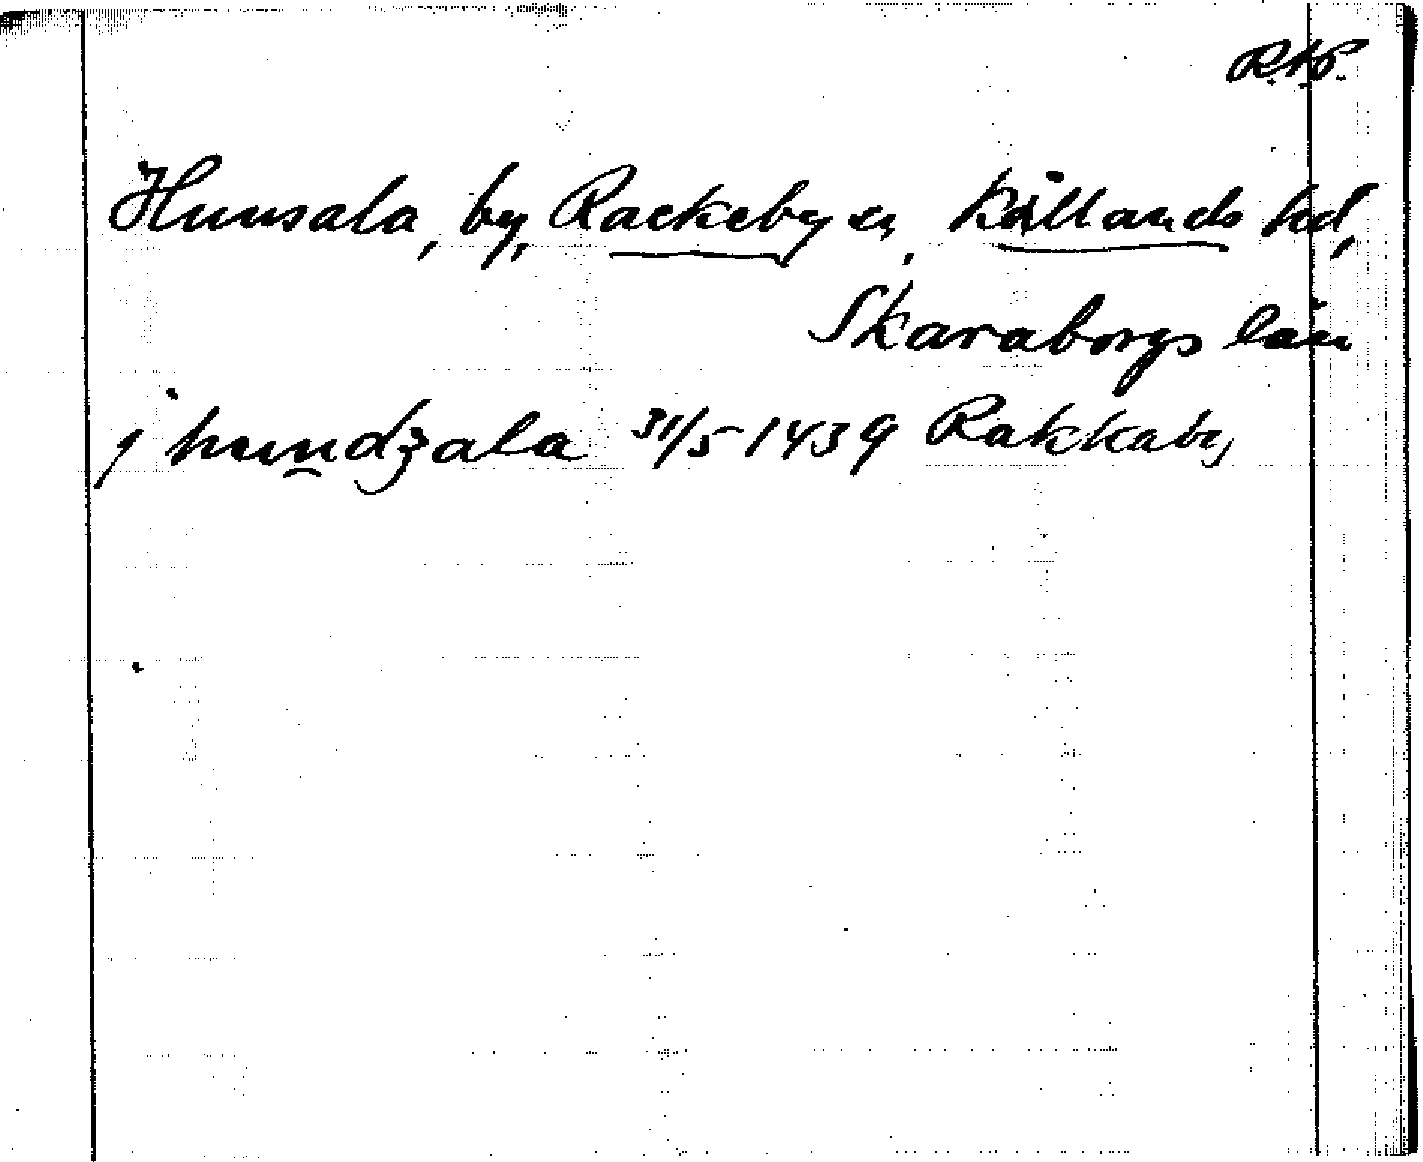 R.A.P.
Hunsala, by, Rackeby sn, Kållands hd,
Skaraborgs län
j hundzala 31/5 1439 Rakkaby